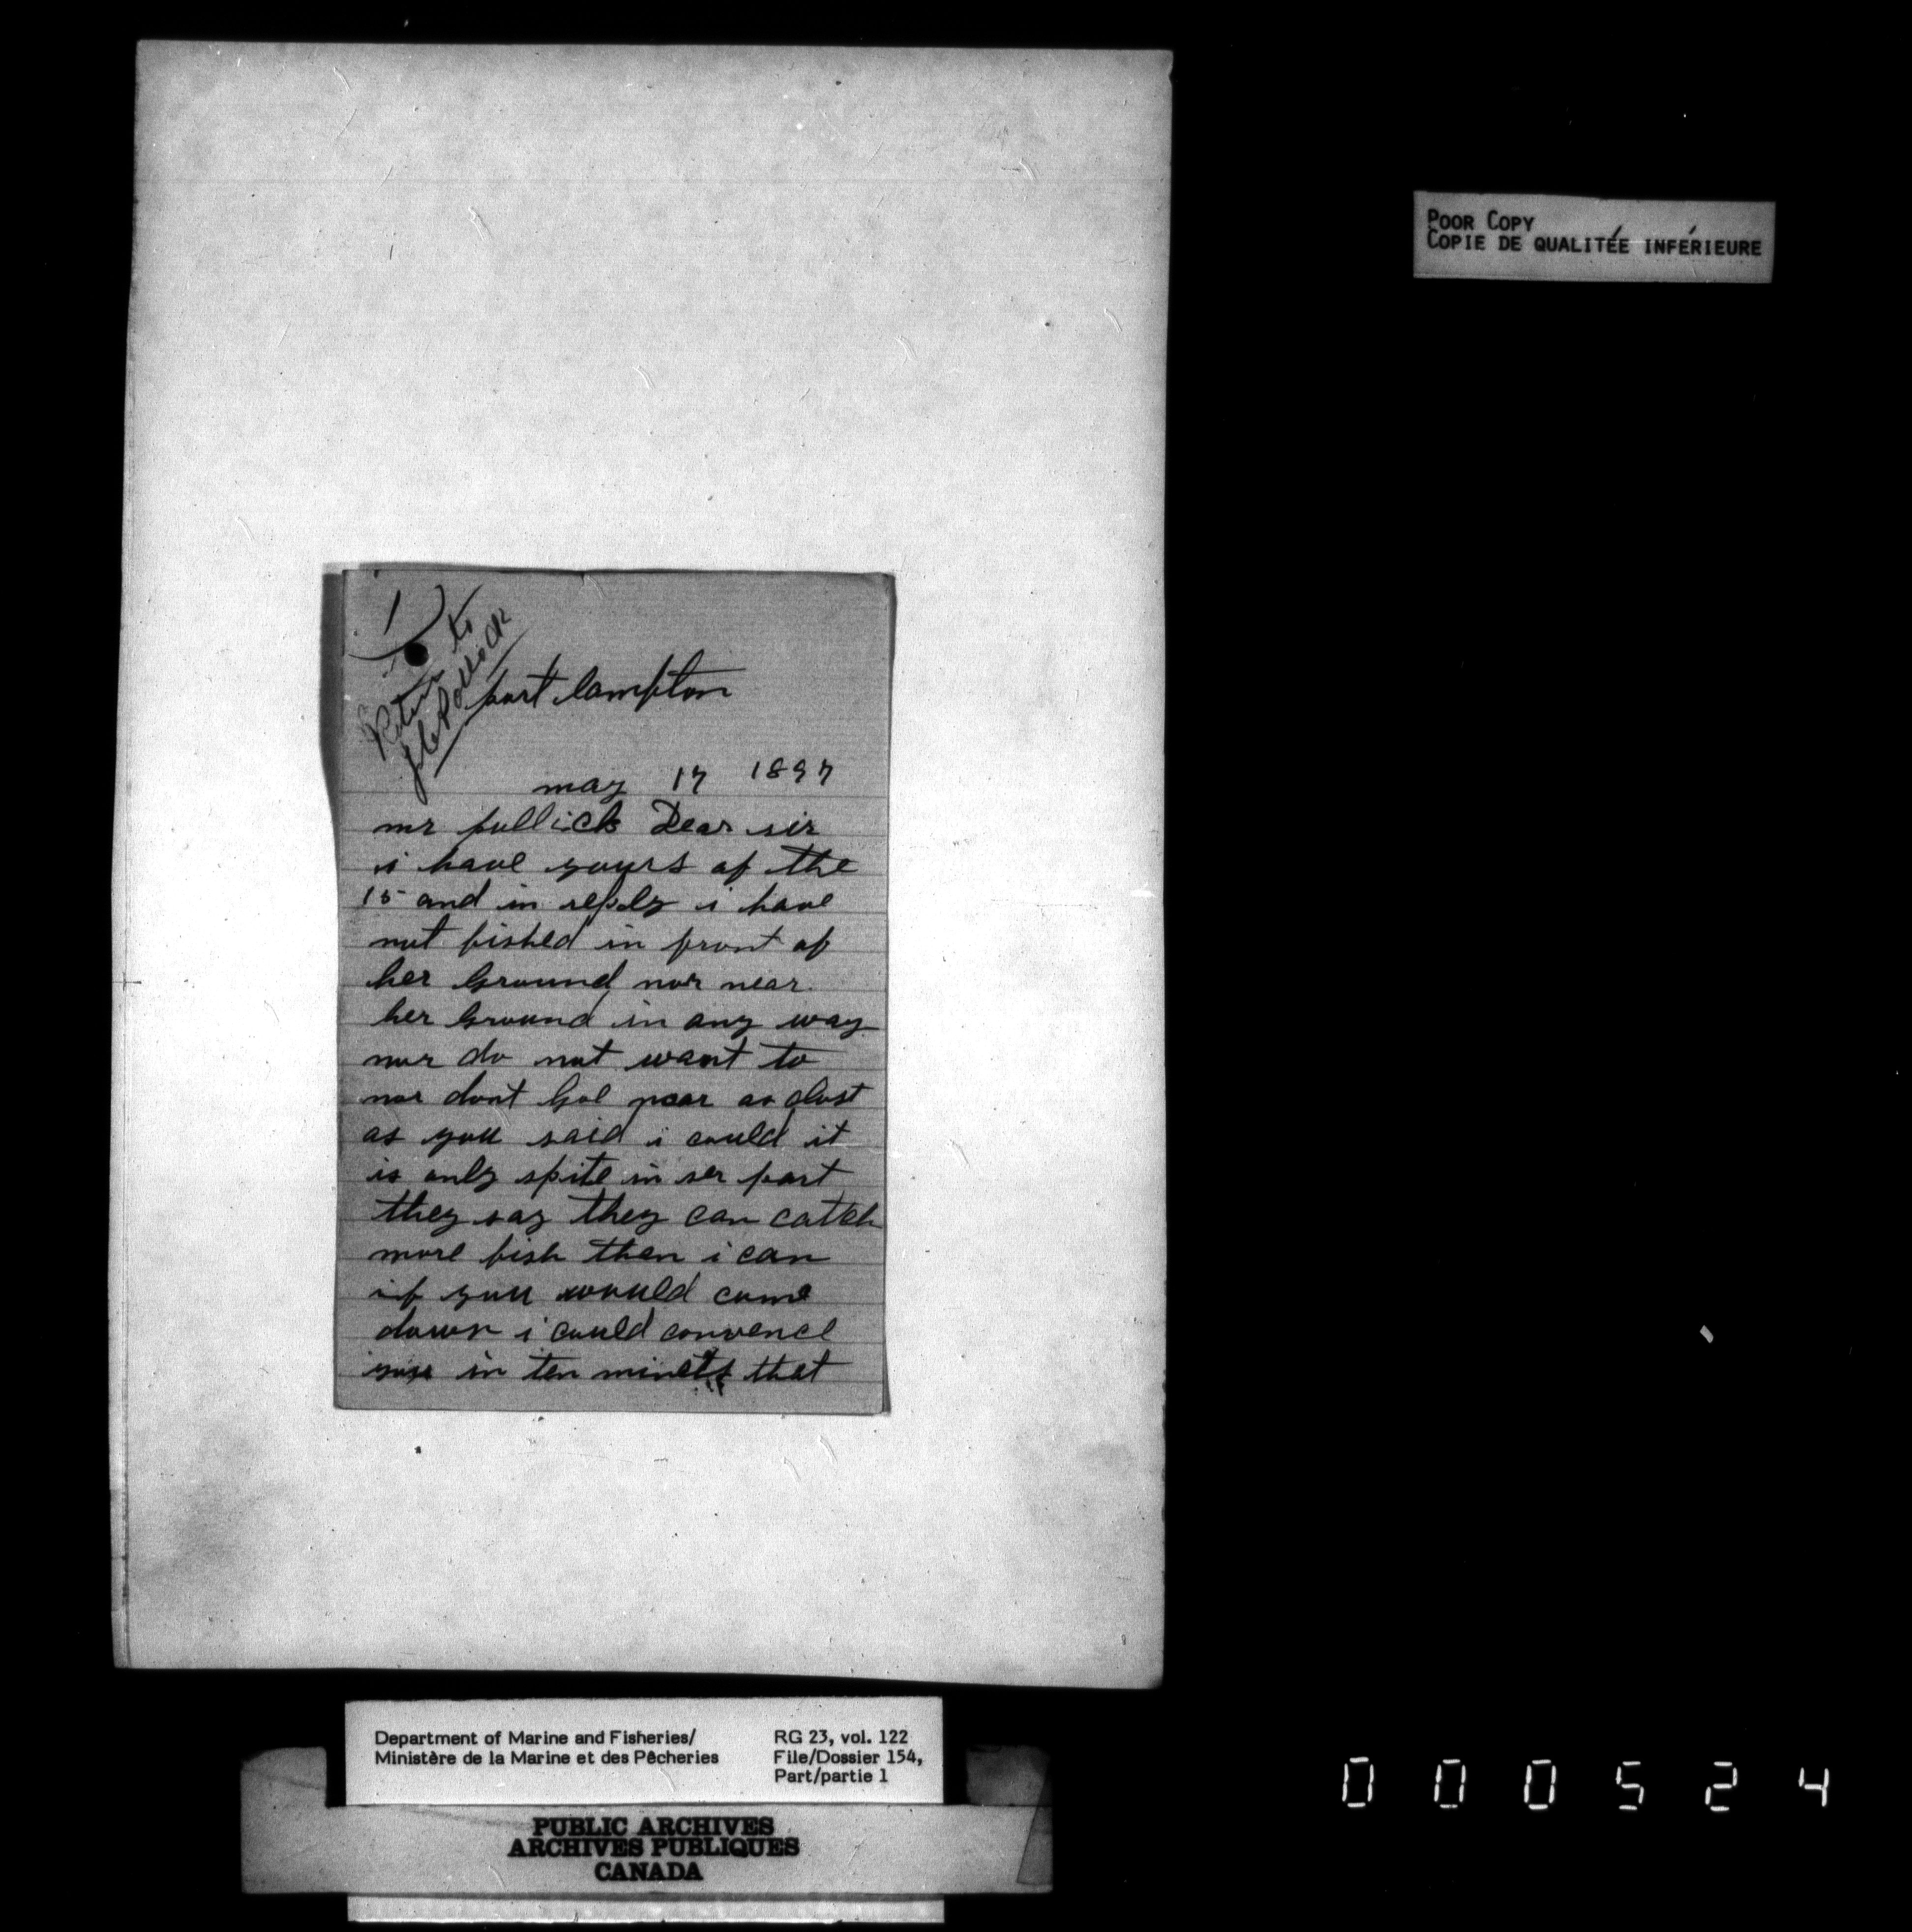 POOR COPY
COPIE DE QUALITÉE INFÉRIEURE
1
Return to
Pollock
port lampton
may 17 1897
mr pullick Dear sir
i have yours of the
15 and in reply i have
not fished in front of
her Ground nor near
her Ground in any way
nor do not want to
nor dont Goe near as clost
as you said i could it
is only spite in her part
they say they can catch
more fish then i can
if you would come
down i could convence
you in ten minets that
Department of Marine and Fisheries/
Ministère de la Marine et des Pêcheries
RG 23, vol. 122
File/Dossier 154,
Part/partie 1
PUBLIC ARCHIVES
ARCHIVES PUBLIQUES
CANADA
000524